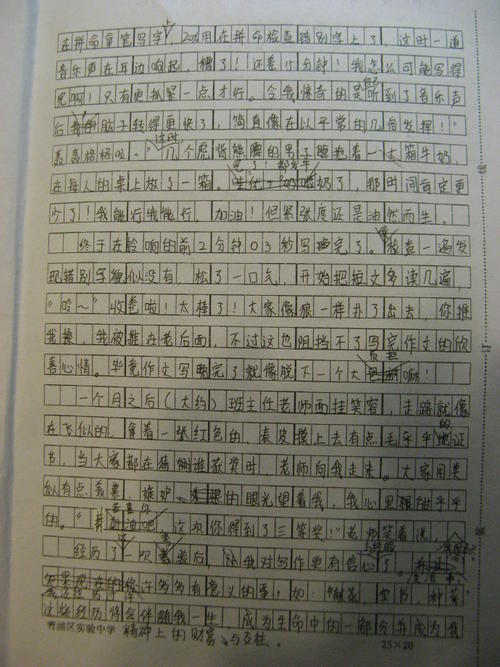 在拼命重笔写字，20%用在拼命检查错别字上了，这时一道
音乐声在耳边响起，糟了！还差15分钟！我怎么可能写得
完啊！只有更抓紧一点才行。令我惊奇的是自己听到了音乐声
后脑子转得更快了，简直像在以平常的几倍发挥！"
这时，几个虎背熊腰的男子腰抱着一大箱牛奶，
在每人的桌上放了一箱。完了！都发牛奶了，那时间肯定更
少了！我能行我能行，加油！但紧张度还是油然而生。
终于在铃响的前2分钟03秒写完了。检查一遍发
现错别字貌似没有，松了一口气，开始把短文多读几遍，
"吟～"收卷啦！太棒了！大家像狼一样扑了出去，你推
我搡，我被推在老后面，不过这也阻挡不了写完作文的欣
喜心情。毕竟作文写完了就像脱下一个大负担嘛！
一个月之后（大约）班主任老师面挂笑容，走路就像
在飞似的，拿着一张红色的、表皮摸上去有点毛乎乎的证
书，当大家都在猜测谁获奖时，老师向我走来。大家用类
似有点羡慕，嫉妒的眼光望着我，我心里
的。"恭喜你，这次你得到了三等奖！"老师笑着说，
经历了这一次考验后，我对写作更有信心了。
许多多有意义的事，如：
这些经历将会伴随我一生，成为生命中的一部分并成为我
青浦区实验中学 精神上的财富与支柱。 25×20